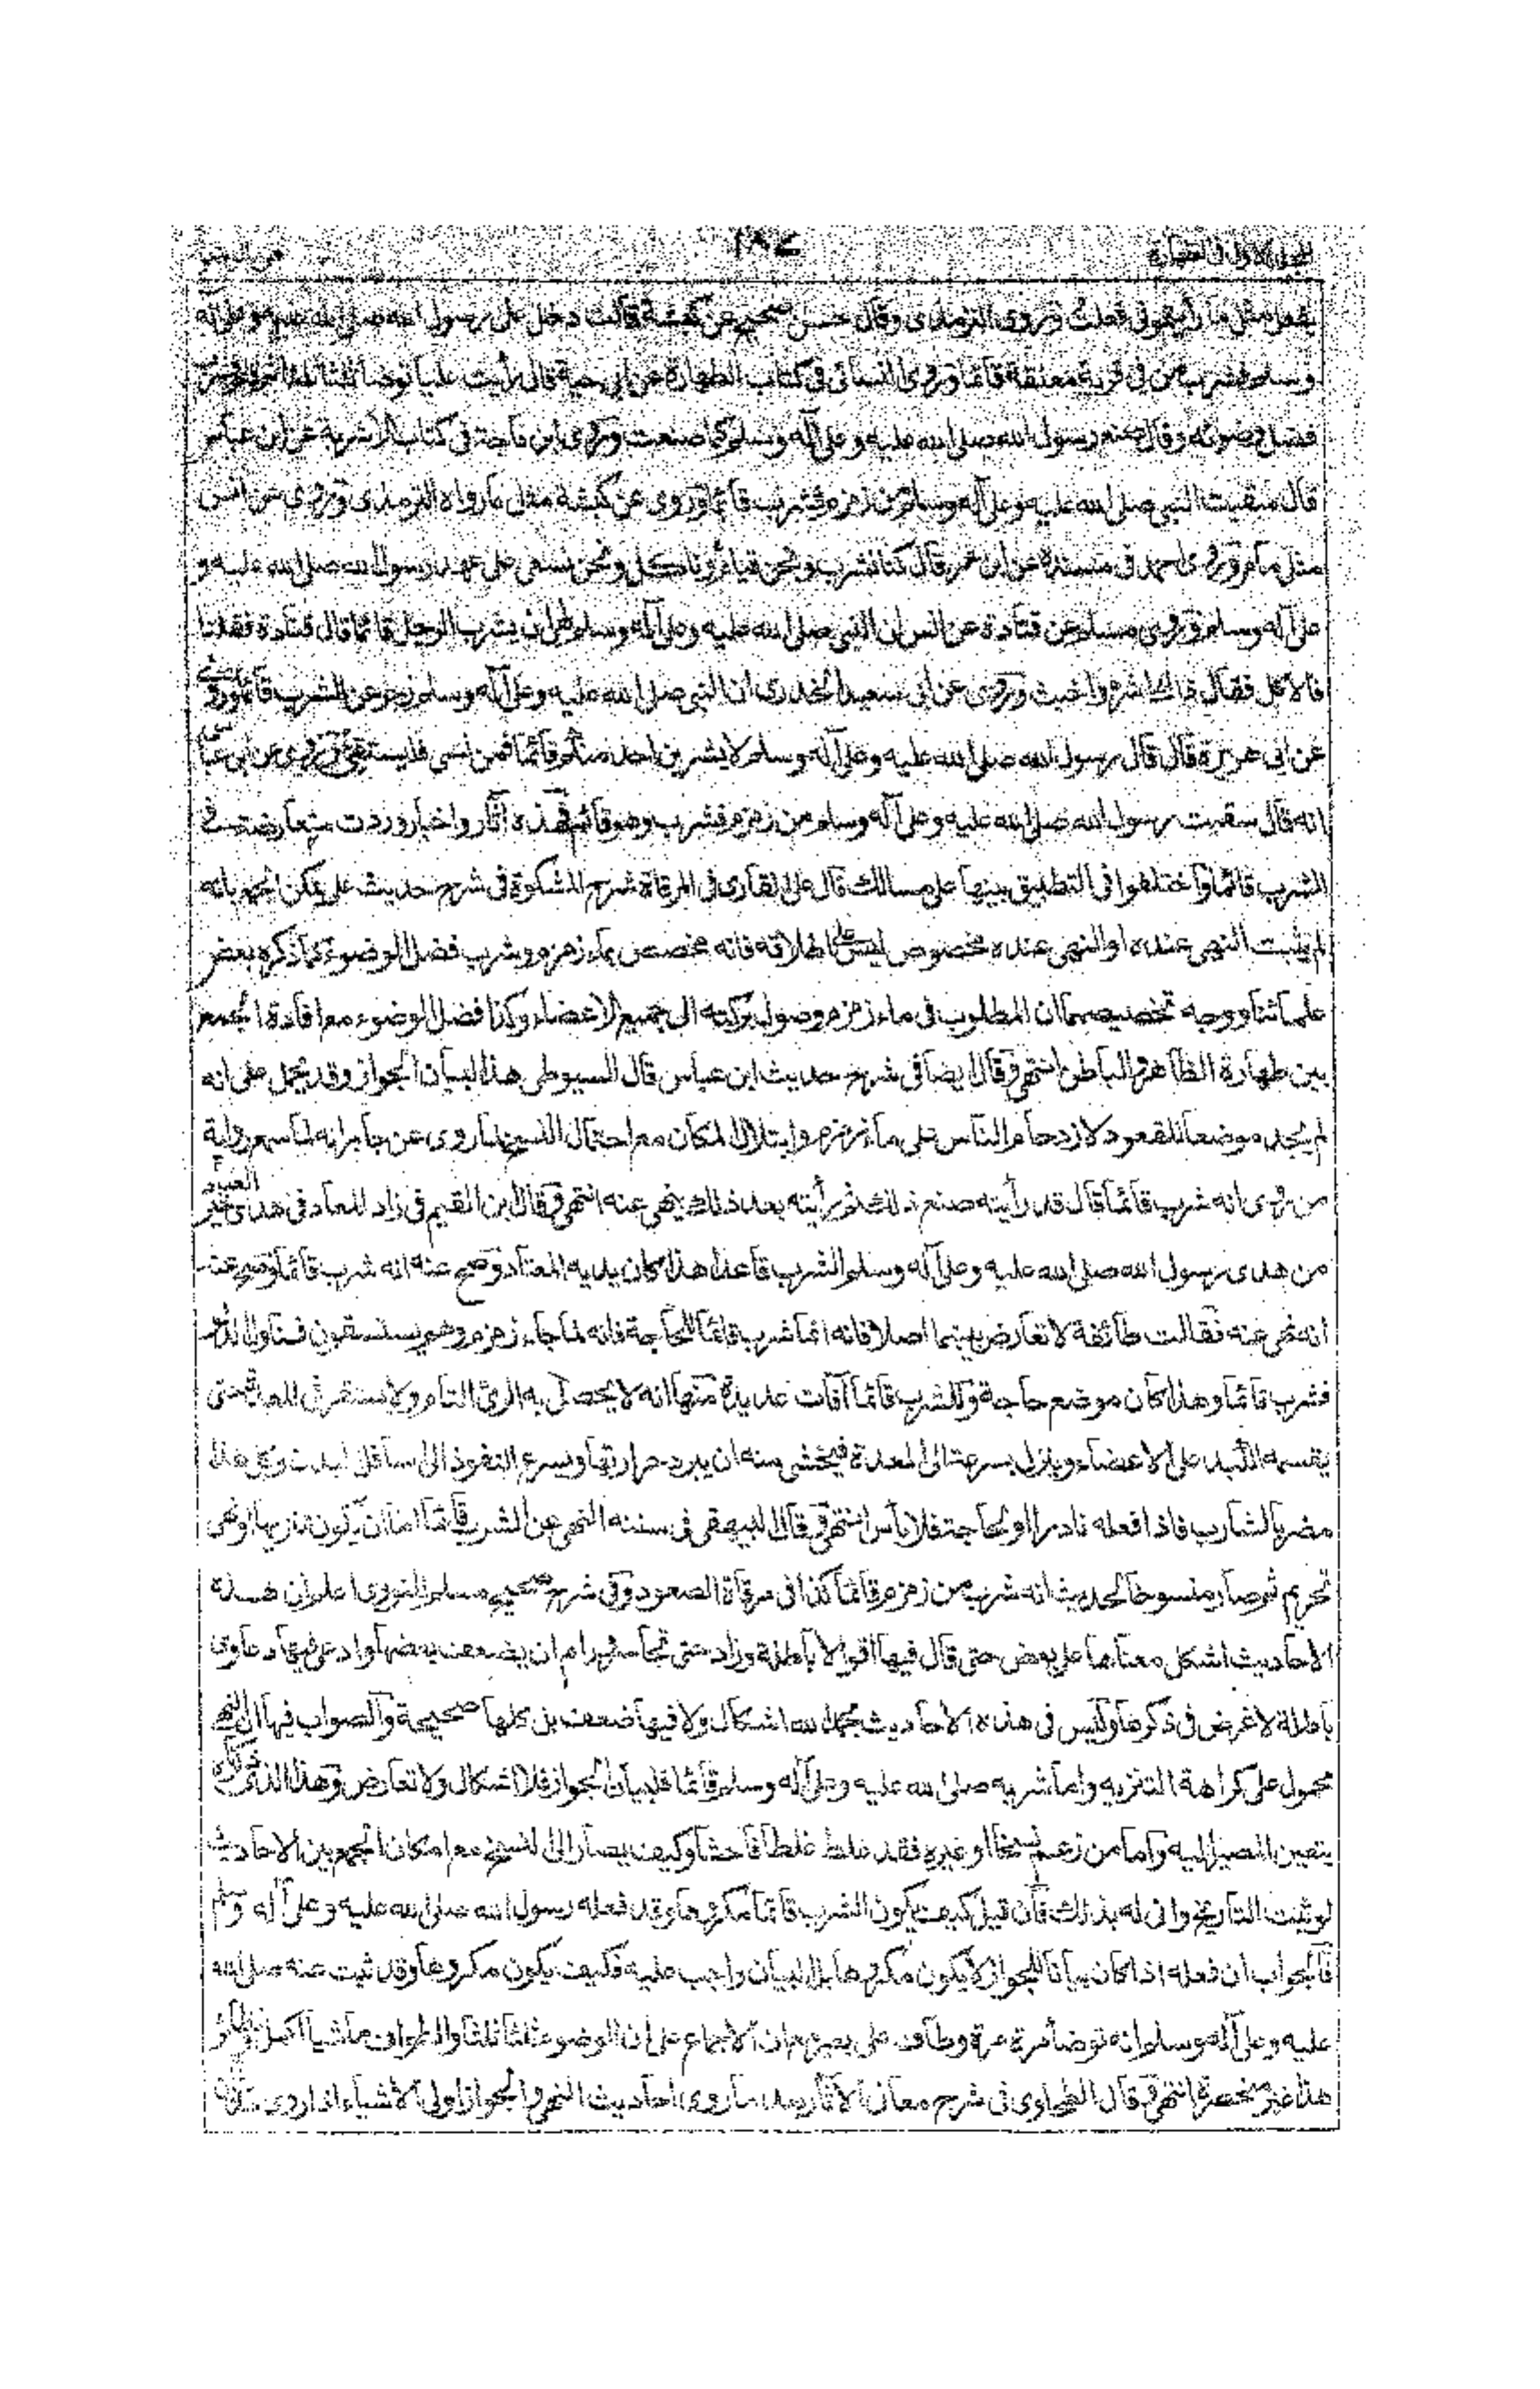 ١٨٤
يفعل مثل ما رأيتموني فعلت وروى الترمذي وقال حسن صحيح عن كبشة قالت دخل على رسول الله صلى الله عليه وعلى آله
وسلم فشرب من في قربة معلقة قائما وروى النسائي في كتاب الطهارة عن ابي حية قال رأيت عليا توضأ ثلثا ثلثا
فضل وضوئه وقال صنع رسول الله صلى الله عليه وعلى آله وسلم كما صنعت وروى ابن ماجة في كتاب الاشربة عن ابن عباس
قال سقيت النبي صلى الله عليه وعلى آله وسلم من زمزم فشرب قائما وروى عن كبشة مثل ما رواه الترمذي وروى عن انس
مثل ما مر وروى احمد في مسنده عن ابن عمر قال كنا نشرب ونحن قيام وناكل ونحن نسعى على عهد رسول الله صلى الله عليه و
على آله وسلم وروى مسلم عن قتادة عن انس ان النبي صلى الله عليه وعلى آله وسلم نهى ان يشرب الرجل قائما قال قتادة فقلنا
فالاكل فقال ذاك اشر واخبث وروى عن ابي سعيد الخدري ان النبي صلى الله عليه وعلى آله وسلم زجر عن الشرب قائما وروى
عن ابي هريرة قال قال رسول الله صلى الله عليه وعلى آله وسلم لا يشربن احد منكم قائما فمن نسي فليستقئ وروى عن ابن عباس
انه قال سقيت رسول الله صلى الله عليه وعلى آله وسلم من زمزم فشرب وهو قائم فهذه آثار واخبار وردت متعارضة في
الشرب قائما واختلفوا في التطبيق بينها على مسالك قال على القاري في المرقاة شرح المشكوة في شرح حديث علي يمكن الجمع بانه
لم يثبت النهي عنده او النهي عنده مخصوص ليس على اطلاقه فانه مخصص بماء زمزم وشرب فضل الوضوء كما ذكره بعض
علمائنا ووجه تخصيصهما ان المطلوب في ماء زمزم وصول بركته الى جميع الاعضاء وكذا فضل الوضوء مع افادة الجمع
بين طهارة الظاهر والباطن انتهى وقال ايضا في شرح حديث ابن عباس قال السيوطي هذا لبيان الجواز وقد يحمل على انه
لم يجد موضعا للقعود لازدحام الناس على ماء زمزم وابتلال المكان مع احتمال النسخ لما روى عن جابر انه لما سمع رواية
من روى انه شرب قائما قال قد رأيته صنع ذلك ثم رأيته بعد ذلك ينهى عنه انتهى وقال ابن القيم في زاد المعاد في هدى خير العباد
من هدى رسول الله صلى الله عليه وعلى آله وسلم الشرب قاعدا هذا كان هديه المعتاد وصح عنه انه شرب قائما وصح عنه
انه نهى عنه فقالت طائفة لا تعارض بينهما اصلا فانه انما شرب قائما للحاجة فانه لما جاء زمزم وهم يستسقون فناولوا الدلو
فشرب قائما وهذا كان موضع حاجة وللشرب قائما آفات عديدة منها انه لا يحصل به الري التام ولا يستقر في المعدة حتى
يقسمه الكبد على الاعضاء وينزل بسرعة الى المعدة فيخشى منه ان يبرد حرارتها ويسرع النفوذ الى سافل البدن وكل هذا
مضر بالشارب فاذا فعله نادرا او لحاجة فلا بأس انتهى وقال البيهقي في سننه النهي عن الشرب قائما اما ان يكون تنزيها او نهى
تحريم ثم صار منسوخا لحديث انه شرب من زمزم قائما كذا في مرقاة الصعود وفي شرح صحيح مسلم للنووي اعلم ان هذه
الاحاديث اشكل معناها على بعض حتى قال فيها اقوالا باطلة وزاد حتى تجاسر ورام ان يضعف بعضها وادعى فيها دعاوى
باطلة لا غرض في ذكرها وليس في هذه الاحاديث بحمد الله اشكال ولا فيها ضعف بل كلها صحيحة والصواب فيها ان النهي
محمول على كراهة التنزيه واما شربه صلى الله عليه وعلى آله وسلم قائما فلبيان الجواز فلا اشكال ولا تعارض وهذا الذي ذكرناه
يتعين المصير اليه واما من زعم نسخا او غيره فقد غلط غلطا فاحشا وكيف يصار الى النسخ مع امكان الجمع بين الاحاديث
لو ثبت التاريخ وانى له بذلك فان قيل كيف يكون الشرب قائما مكروها وقد فعله رسول الله صلى الله عليه وعلى آله وسلم
فالجواب ان فعله اذا كان بيانا للجواز لا يكون مكروها بل البيان واجب عليه فكيف يكون مكروها وقد ثبت عنه صلى الله
عليه وعلى آله وسلم انه توضأ مرة مرة وطاف على بعير مع ان الاجماع على ان الوضوء ثلثا ثلثا والطواف ماشيا اكمل ونظائر
هذا غير منحصرة انتهى وقال الطحاوي في شرح معاني الآثار بعد ما روى احاديث النهي والجواز اولى الاشياء اذا روى